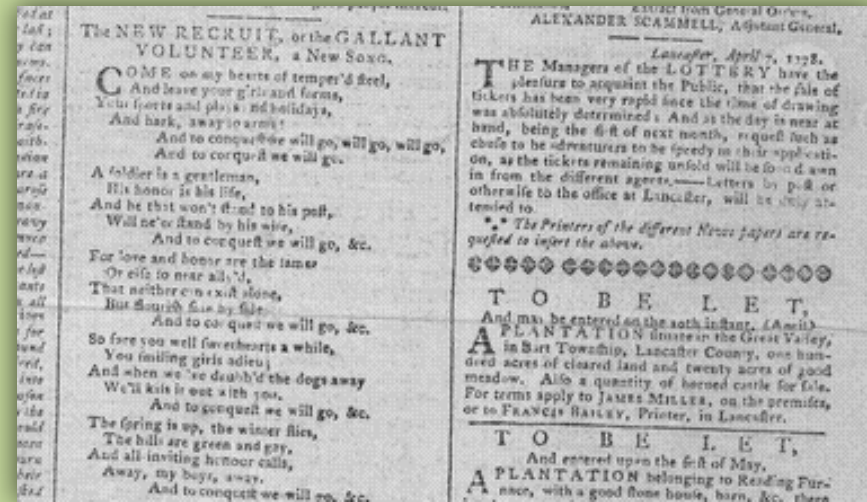 The NEW RECRUIT, or the GALLANT
VOLUNTEER, a New Song.
COME on my hearts of temper'd steel,
And leave your girls and farms,
Your sports and plays and holidays,
And hark, away to arms!
And to conquest we will go, will go, will go,
And to conquest we will go.
A soldier is a gentleman,
His honor is his life,
And he that won't stand to his post,
Will ne'er stand by his wife,
And to conquest we will go, &c.
For love and honor are the same
Or else so near ally'd,
That neither can exist alone,
But flourish side by side
And to conquest we will go, &c.
So fare you well sweethearts a while,
You smiling girls adieu;
And when we've drubb'd the dogs away
We'll kiss it out with you.
And to conquest we will go, &c.
The spring is up, the winter flies,
The hills are green and gay,
And all inviting honour calls,
Away, my boys, away.
And to conquest we will go, &c.
Extract from General Orders,
ALEXANDER SCAMMELL, Adjutant General,
Lancaster, April 7, 1778.
THE Managers of the LOTTERY have the
pleasure to acquaint the Public, that the sale of
tickets has been very rapid since the time of drawing
was absolutely determined: And as the day is near at
hand, being the first of next month, request such as
chuse to be adventurers to be speedy in their applicati-
on, as the tickets remaining unsold will be soon drawn
in from the different agents.——Letters by post or
otherwise to the office at Lancaster, will be duly at-
tended to.
*⁎* The Printers of the different News papers are re-
quested to insert the above.
TO BE LET,
And may be entered on the 20th instant, (April)
A PLANTATION situate in the Great Valley,
in Bart Township, Lancaster County, one hun-
dred acres of cleared land and twenty acres of good
meadow. Also a quantity of horned cattle for sale.
For terms apply to JAMES MILLER, on the premises,
or to FRANCIS BAILEY, Printer, in Lancaster.
TO BE LET,
And entered upon the first of May,
A PLANTATION belonging to Reading Fur-
nace, with a good stone house, barn, &c. there